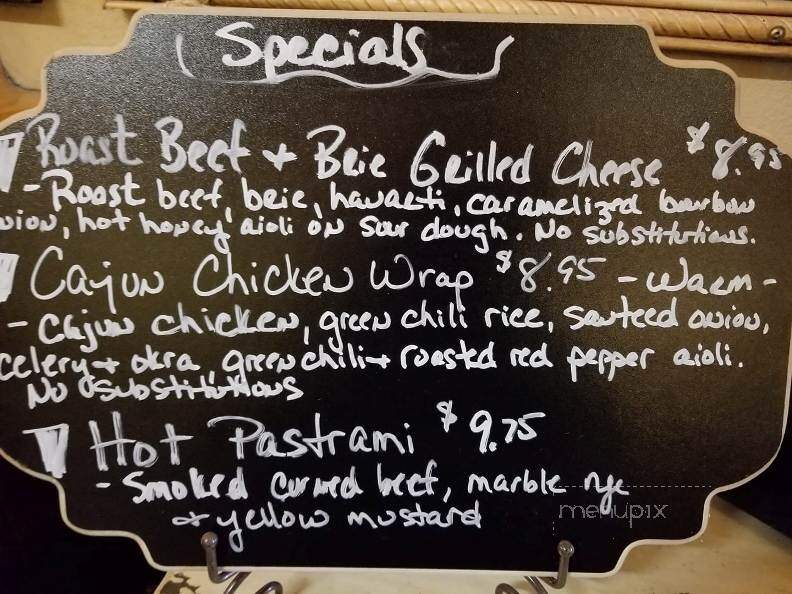 Specials
Roast Beef + Brie Grilled Cheese $8.95
- Roast beef, brie, havarti, caramelized bourbon
onion, hot honey aioli on sour dough. No substitutions.
Cajun Chicken Wrap $8.95 - Warm -
- Cajun chicken, green chili rice, sauteed onion,
celery + okra, green chili + roasted red pepper aioli.
No substitutions
Hot Pastrami $9.75
- Smoked corned beef, marble rye
+ yellow mustard
menupix